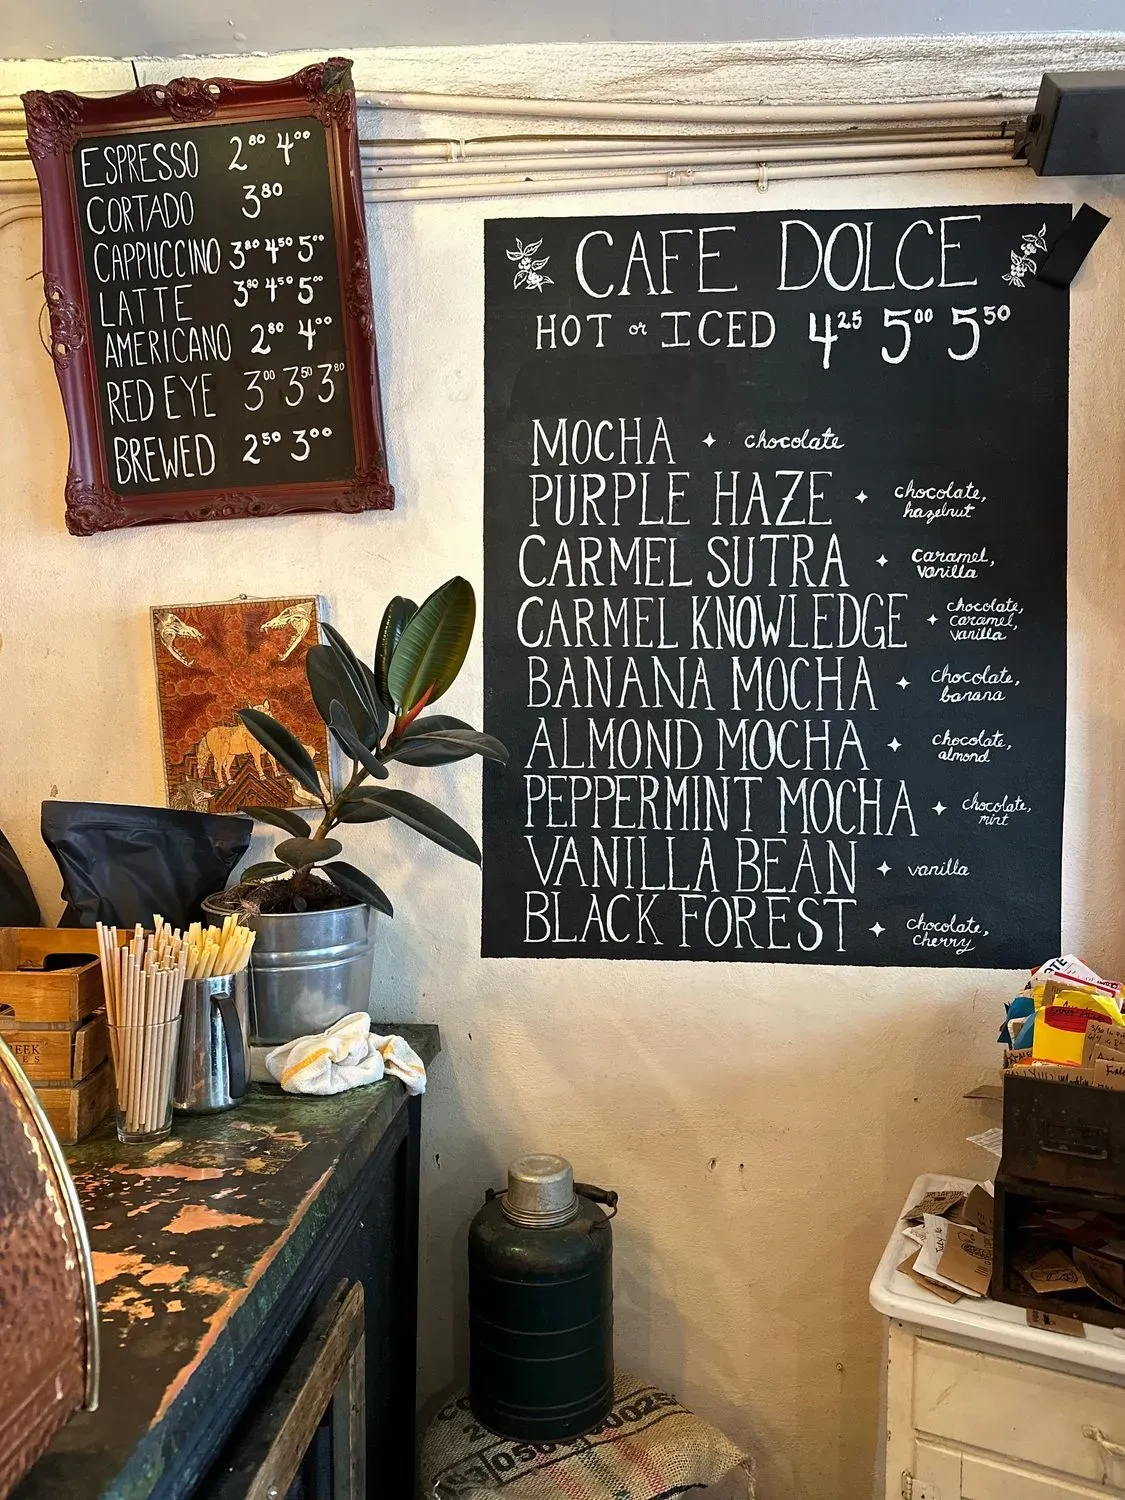 ESPRESSO 2⁸⁰ 4⁰⁰
CORTADO 3⁸⁰
CAPPUCCINO 3⁸⁰ 4⁵⁰ 5⁰⁰
LATTE 3⁸⁰ 4⁵⁰ 5⁰⁰
AMERICANO 2⁸⁰ 4⁰⁰
RED EYE 3⁰⁰ 3⁵⁰ 3⁸⁰
BREWED 2⁵⁰ 3⁰⁰
CAFE DOLCE
HOT or ICED 4²⁵ 5⁰⁰ 5⁵⁰
MOCHA ✦ chocolate
PURPLE HAZE ✦ chocolate,
hazelnut
CARMEL SUTRA ✦ caramel,
vanilla
CARMEL KNOWLEDGE ✦ chocolate,
caramel,
vanilla
BANANA MOCHA ✦ chocolate,
banana
ALMOND MOCHA ✦ chocolate,
almond
PEPPERMINT MOCHA ✦ chocolate,
mint
VANILLA BEAN ✦ vanilla
BLACK FOREST ✦ chocolate,
cherry